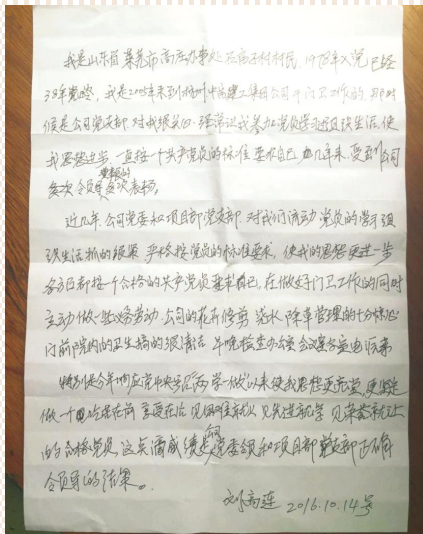 我是山东省莱芜市高庄办事处石庙子村村民，1978年入党已经
38年党龄，我是2005年来到杭州中城建工集团公司干门卫工作的，那时
候是公司党支部，对我很关心，经常让我参加党员学习过组织生活，使
我思想进步，一直按一个共产党员的标准要求自己，几年来，受到公司
多次表扬。
近几年，公司党委和项目部党支部，对我们流动党员的学习组
织生活抓的很紧，严格按党员的标准要求，使我的思想更进一步
各方面都按一个合格的共产党员要求自己，在做好门卫工作的同时
主动做一些义务劳动，公司的花卉修剪，浇水，除草管理的十分精心
门前院内的卫生搞的很清洁，早晚检查办公室会议室
特别是今年响应党中央号召两学一做以来使我思想更充实，更坚定
做一个吃苦在前享受在后，见困难就上，见先进就学，见荣誉就让
的合格党员，这点滴成绩是党委组和项目部党支部正确
领导的结果。
刘高连 2016.10.14号